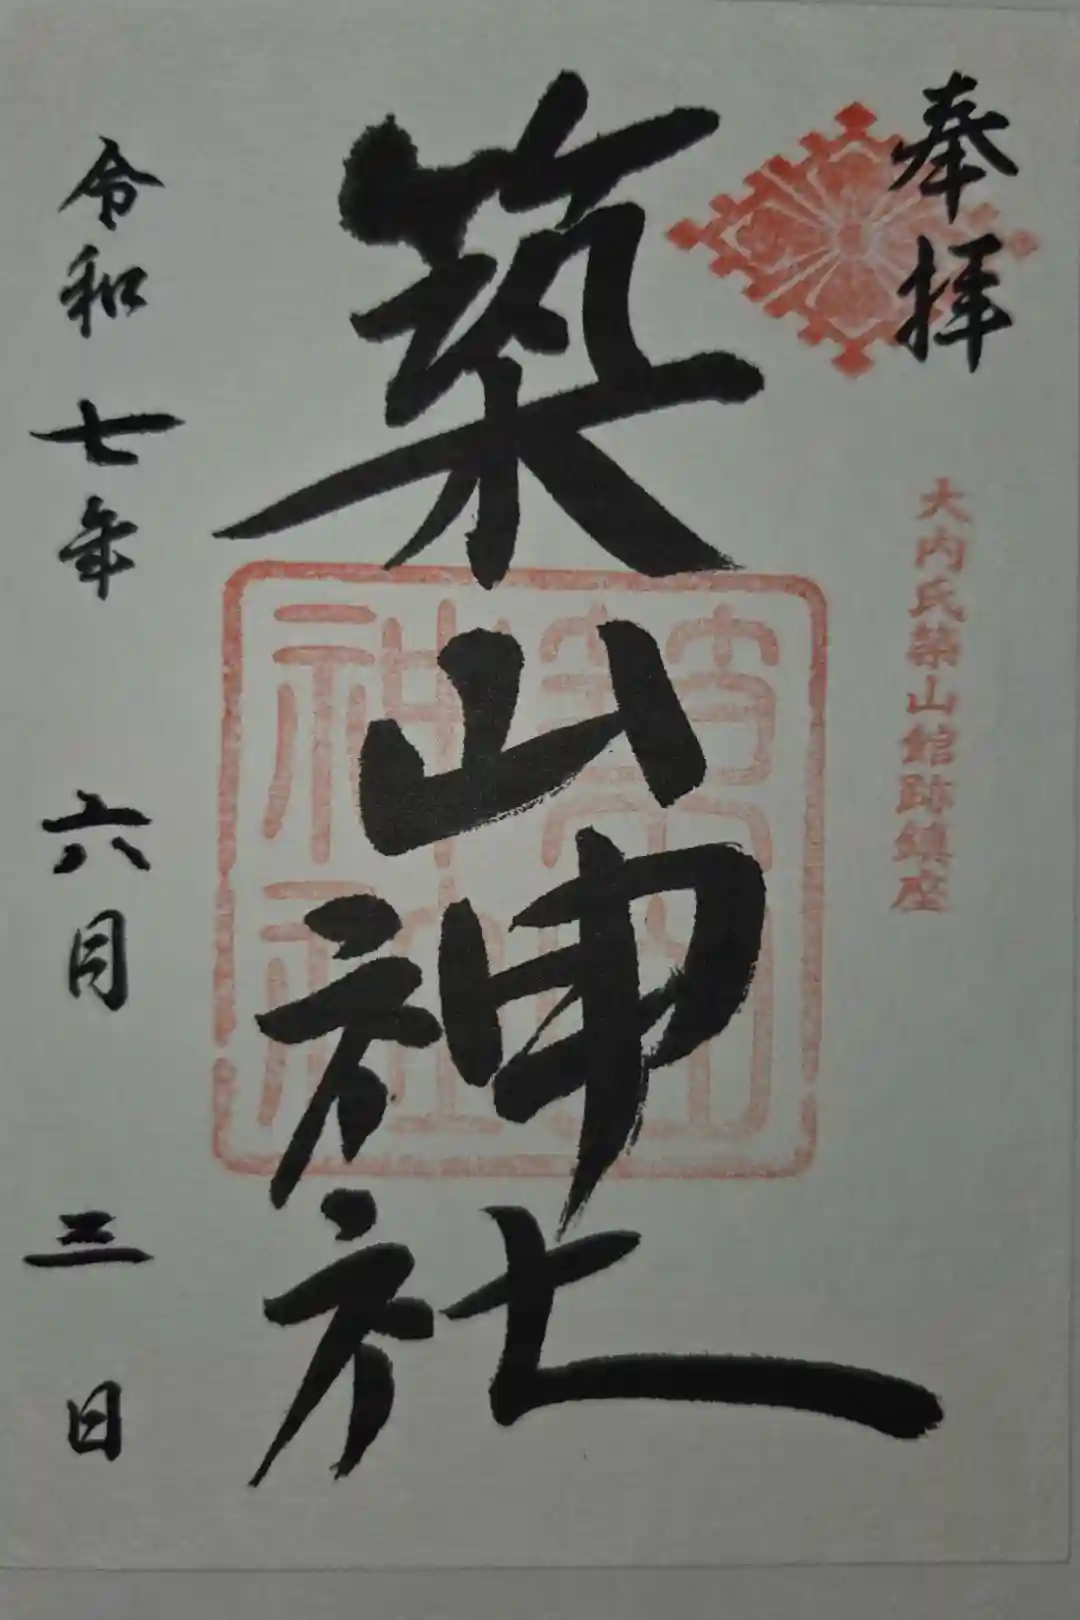 奉拝
大内氏築山館跡鎮座
築山神社
令和七年六月三日